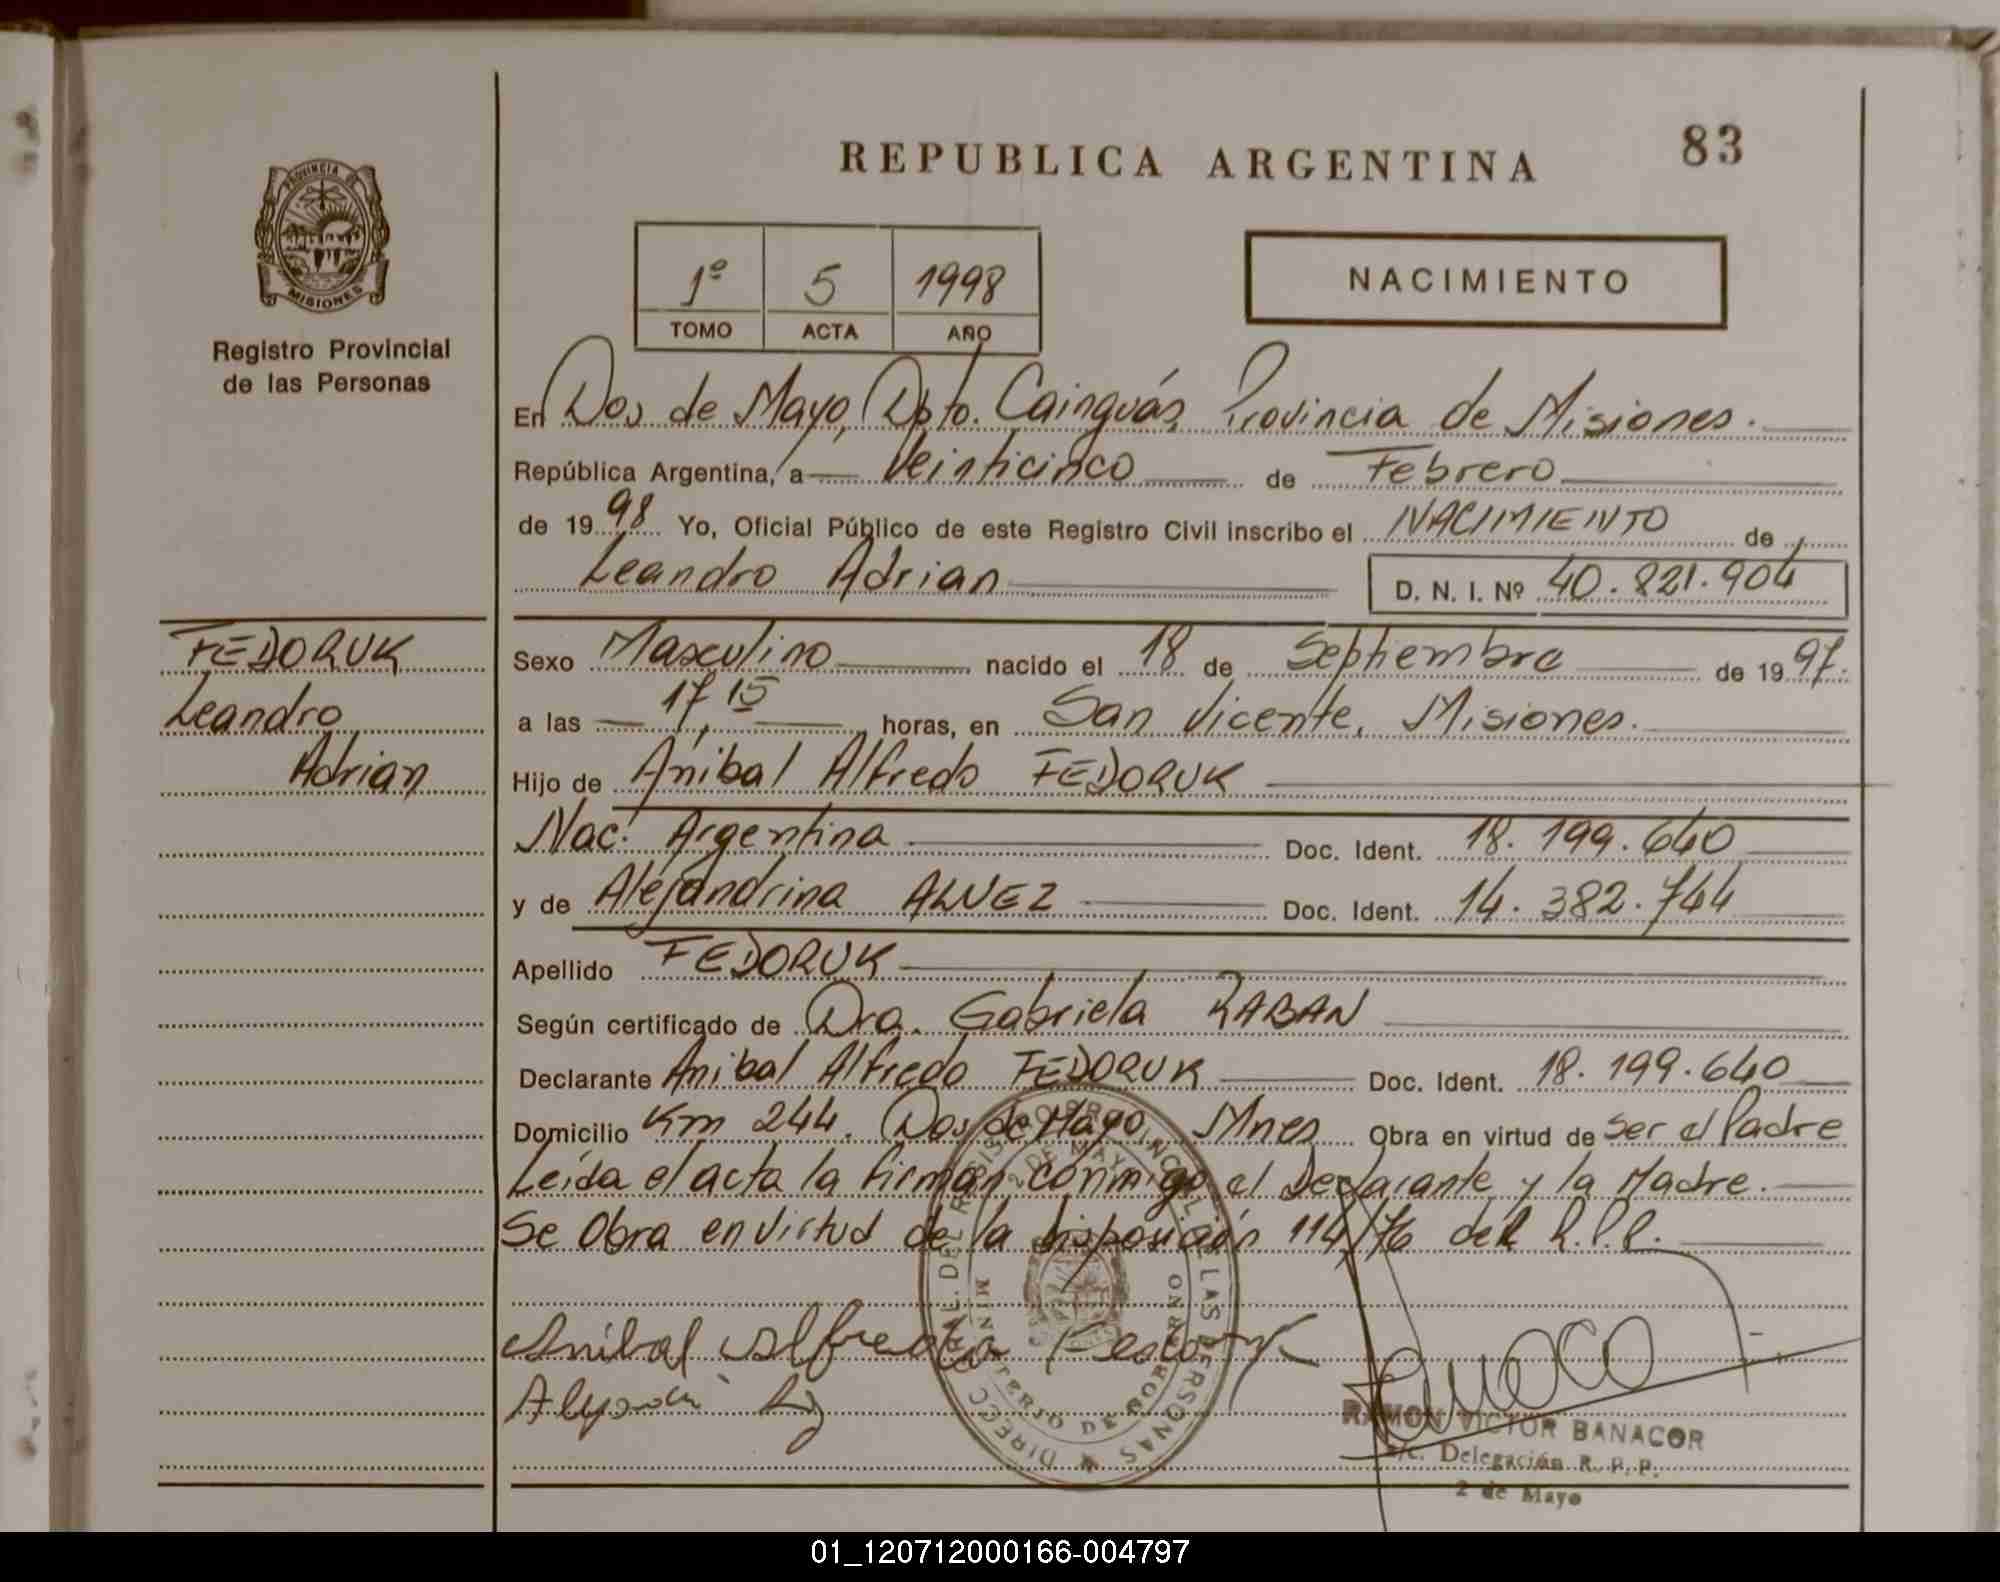 83
REPUBLICA ARGENTINA
PROVINCIA DE
MISIONES
Registro Provincial
de las Personas
1º 5 1998
TOMO ACTA AÑO
NACIMIENTO
En Dos de Mayo, Dpto. Cainguás, Provincia de Misiones.
República Argentina, a Veinticinco de Febrero
de 1998 Yo, Oficial Público de este Registro Civil inscribo el NACIMIENTO de
Leandro Adrian D. N. I. Nº 40.821.904
FEDORUK
Leandro
Adrian
Sexo Masculino nacido el 18 de Septiembre de 1997.
a las 17,15 horas, en San Vicente, Misiones.
Hijo de Anibal Alfredo FEDORUK
Nac. Argentina Doc. Ident. 18.199.640
y de Alejandrina ALVEZ Doc. Ident. 14.382.744
Apellido FEDORUK
Según certificado de Dra. Gabriela RABAN
Declarante Anibal Alfredo FEDORUK Doc. Ident. 18.199.640
Domicilio Km 244. Dos de Mayo, Mnes Obra en virtud de ser el Padre
Leída el acta la firman conmigo el Declarante y la Madre.
Se Obra en virtud de la disposición 114/76 del R.P.P.
Anibal Alfredo Fedoruk
DIRECC. GRAL. DEL REGISTRO PROVINCIAL DE LAS PERSONAS
2 DE MAYO
MINISTERIO DE GOBIERNO
RAMON VICTOR BANACOR
Delegación R. P. P.
2 de Mayo
01_120712000166-004797